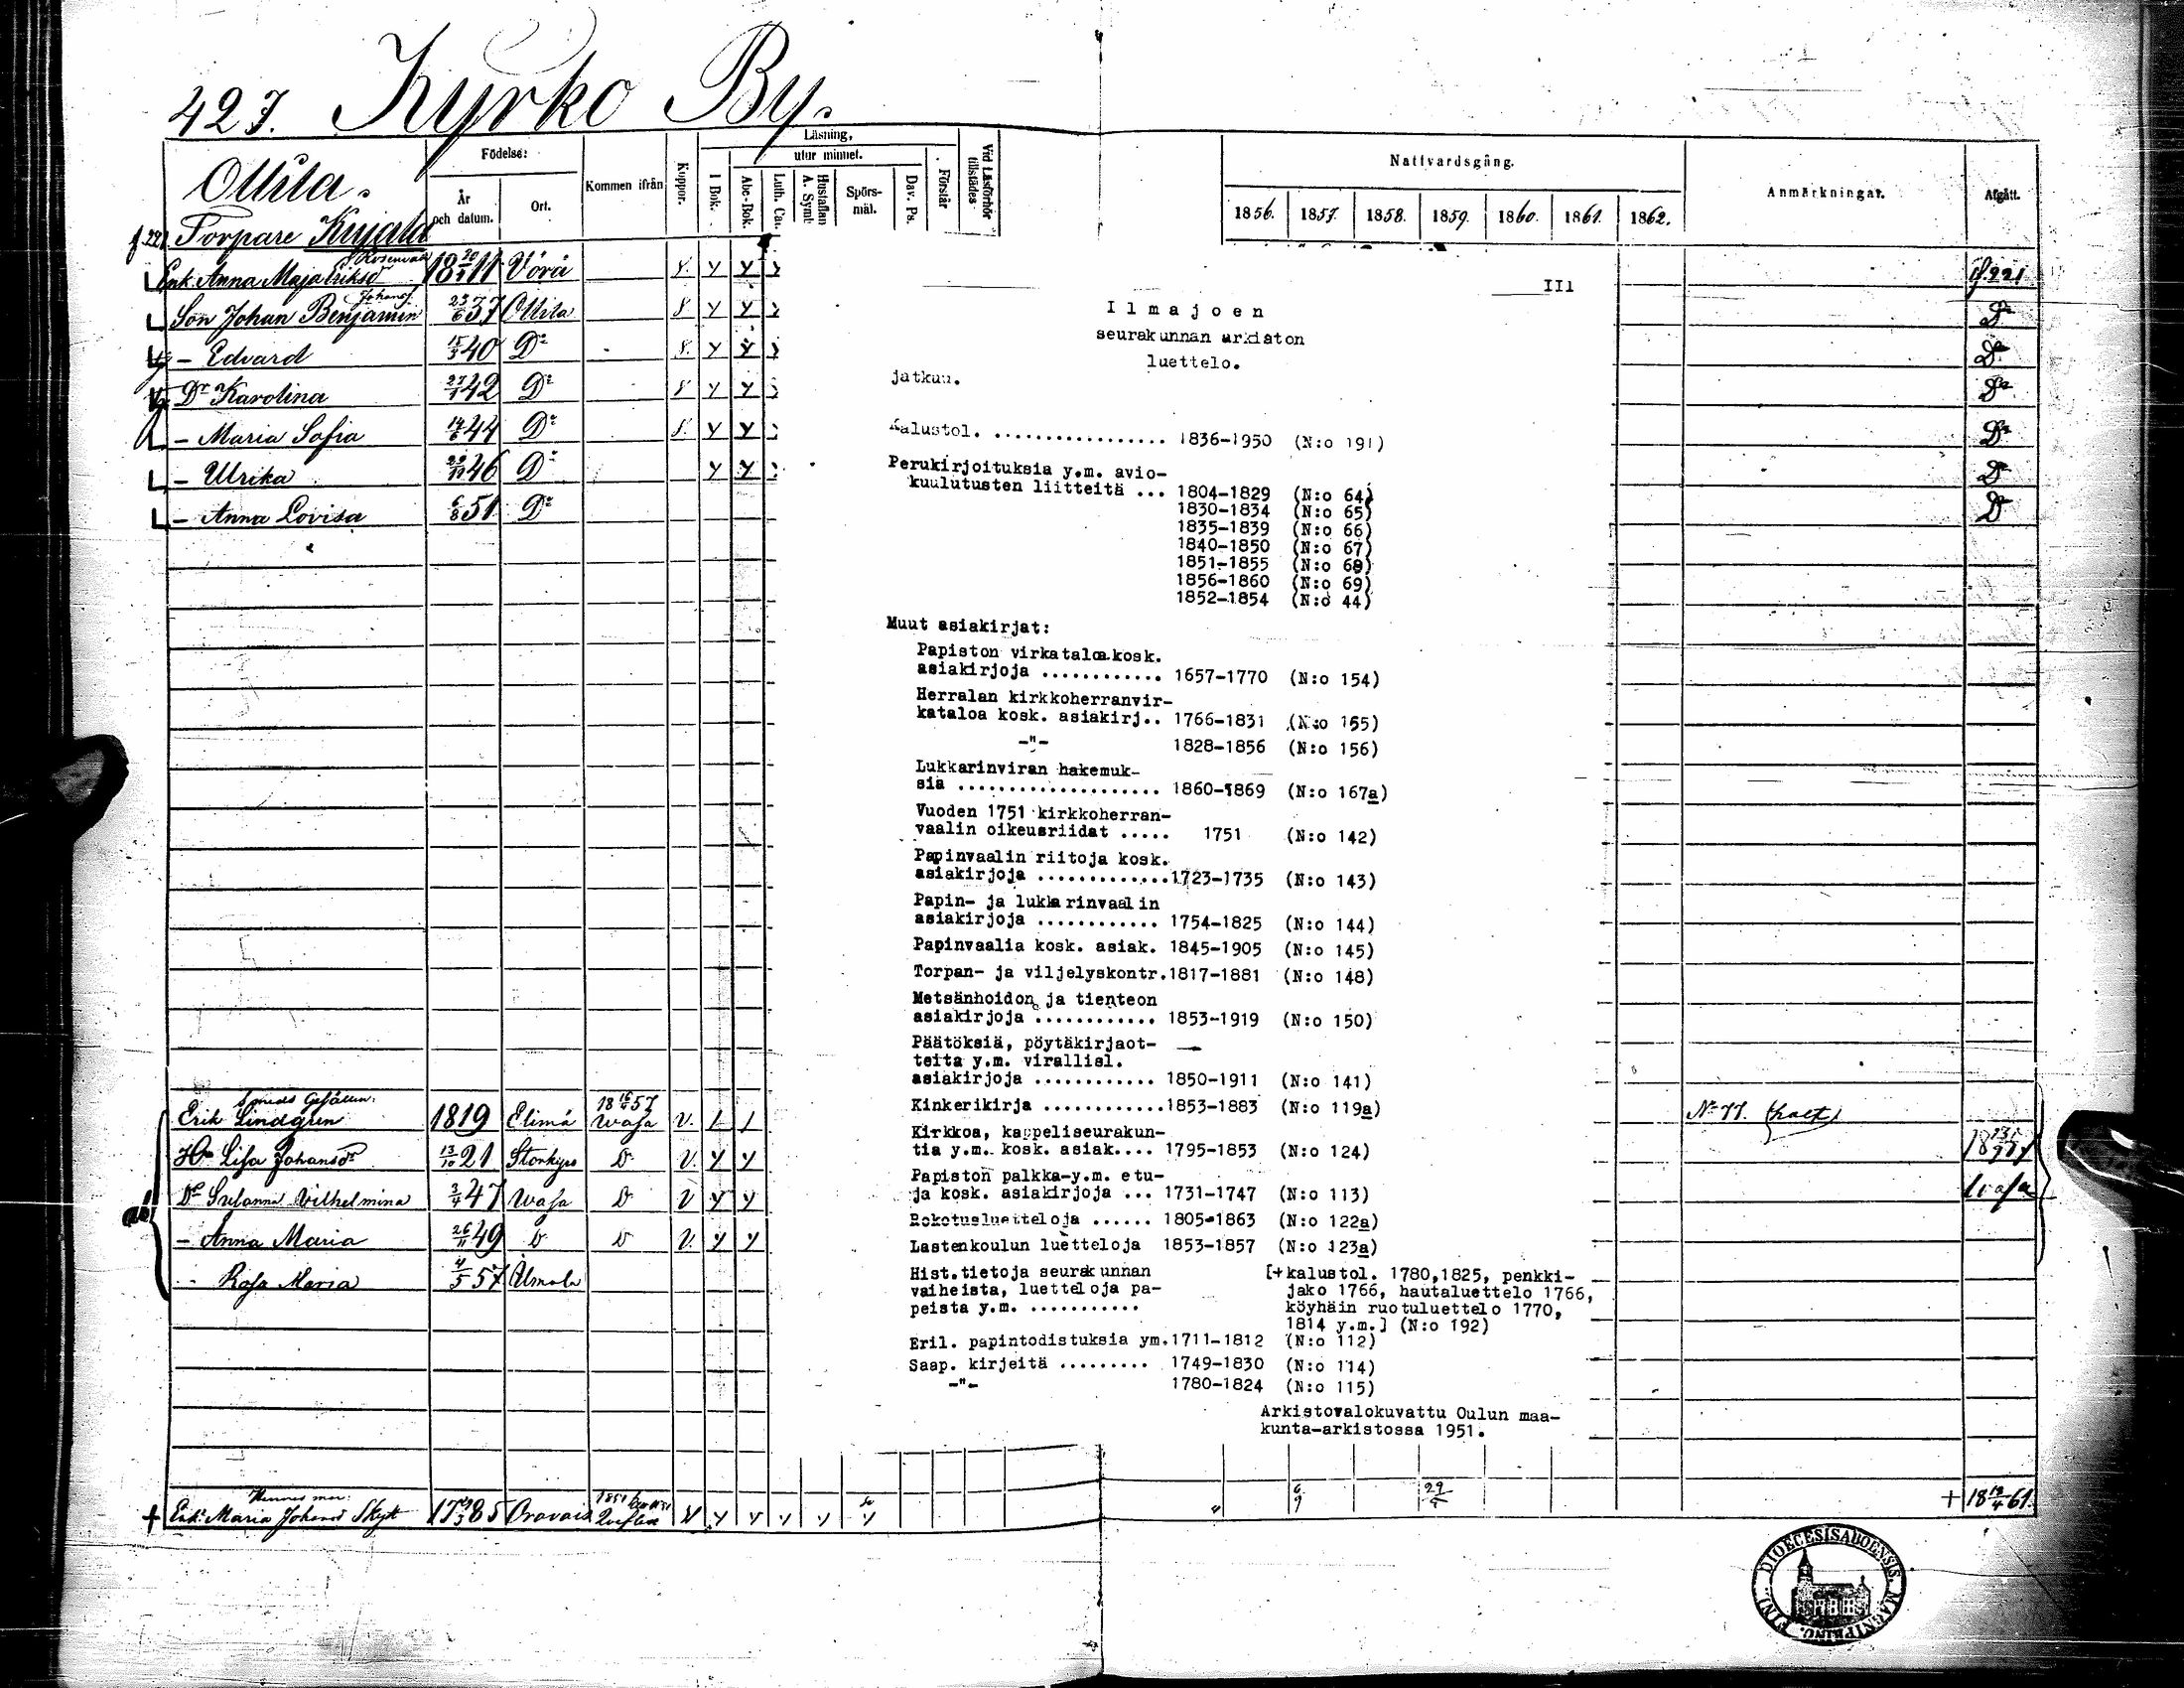 427. Kyrko By.
Ollila.
Torpare Kujala
Födelse:
År och datum.
Ort.
Kommen ifrån
Koppor.
Läsning,
utur minnet.
I Bok.
Abc-Bok.
Luth. Cat.
Hustaflan A. Symb.
Spörs-mål.
Dav. Ps.
Förstår
Vid Läsförhör tillstädes
Nattvardsgång.
1856. 1857. 1858. 1859. 1860. 1861. 1862.
Anmärkningar.
Afgått.
Enk. Anna Maja Eriksdr 1811 Vörå f. 221
Son Johan Benjamin 23/6 37 Ollila Do
- Edvard 15/3 40 Do Do
Dr Karolina 27/1 42 Do Do
- Maria Sofia 14/6 44 Do Do
- Ulrika 46 Do Do
- Anna Lovisa 6/8 51 Do D
III
Ilmajoen
seurakunnan arkiston
luettelo.
jatkuu.
Kalustol. ................. 1836-1950 (N:o 191)
Perukirjoituksia y.m. avio-
kuulutusten liitteitä ... 1804-1829 (N:o 64)
1830-1834 (N:o 65)
1835-1839 (N:o 66)
1840-1850 (N:o 67)
1851-1855 (N:o 68)
1856-1860 (N:o 69)
1852-1854 (N:o 44)
Muut asiakirjat:
Papiston virkataloa kosk.
asiakirjoja ............ 1657-1770 (N:o 154)
Herralan kirkkoherranvir-
kataloa kosk. asiakirj.. 1766-1831 (N:o 155)
-"- 1828-1856 (N:o 156)
Lukkarinviran hakemuk-
sia .................... 1860-1869 (N:o 167a)
Vuoden 1751 kirkkoherran-
vaalin oikeusriidat ..... 1751 (N:o 142)
Papinvaalin riitoja kosk.
asiakirjoja .............1723-1735 (N:o 143)
Papin- ja lukkarinvaalin
asiakirjoja ............ 1754-1825 (N:o 144)
Papinvaalia kosk. asiak. 1845-1905 (N:o 145)
Torpan- ja viljelyskontr.1817-1881 (N:o 148)
Metsänhoidon ja tienteon
asiakirjoja ............ 1853-1919 (N:o 150)
Päätöksiä, pöytäkirjaot-
teita y.m. virallisl.
asiakirjoja ............ 1850-1911 (N:o 141)
Kinkerikirja ............1853-1883 (N:o 119a)
Kirkkoa, kappeliseurakun-
tia y.m. kosk. asiak.... 1795-1853 (N:o 124)
Papiston palkka-y.m. etu-
ja kosk. asiakirjoja ... 1731-1747 (N:o 113)
Rokotusluetteloja ...... 1805-1863 (N:o 122a)
Lastenkoulun luetteloja 1853-1857 (N:o 123a)
Hist.tietoja seurakunnan [+kalustol. 1780,1825, penkki-
vaiheista, luetteloja pa- jako 1766, hautaluettelo 1766,
peista y.m. ........... köyhäin ruotuluettelo 1770,
1814 y.m.] (N:o 192)
Eril. papintodistuksia ym.1711-1812 (N:o 112)
Saap. kirjeitä ......... 1749-1830 (N:o 114)
-"- 1780-1824 (N:o 115)
Arkistovalokuvattu Oulun maa-
kunta-arkistossa 1951.
Erik Lindgren 1819 Elimä Wasa
Hu Lisa Johansdr 13/10 21 Storkyro D
Dr Susanna Vilhelmina 3/4 47 Wasa D Wasa
- Anna Maria 26/11 49 D D
- Rosa Maria 4/5 57 Ilmola
Enk. Maria Johansd Skytt 1785 Oravais + 18 12/4 61.
DIOECESIS ABOENSIS. MAGNI PRINC. FINL.